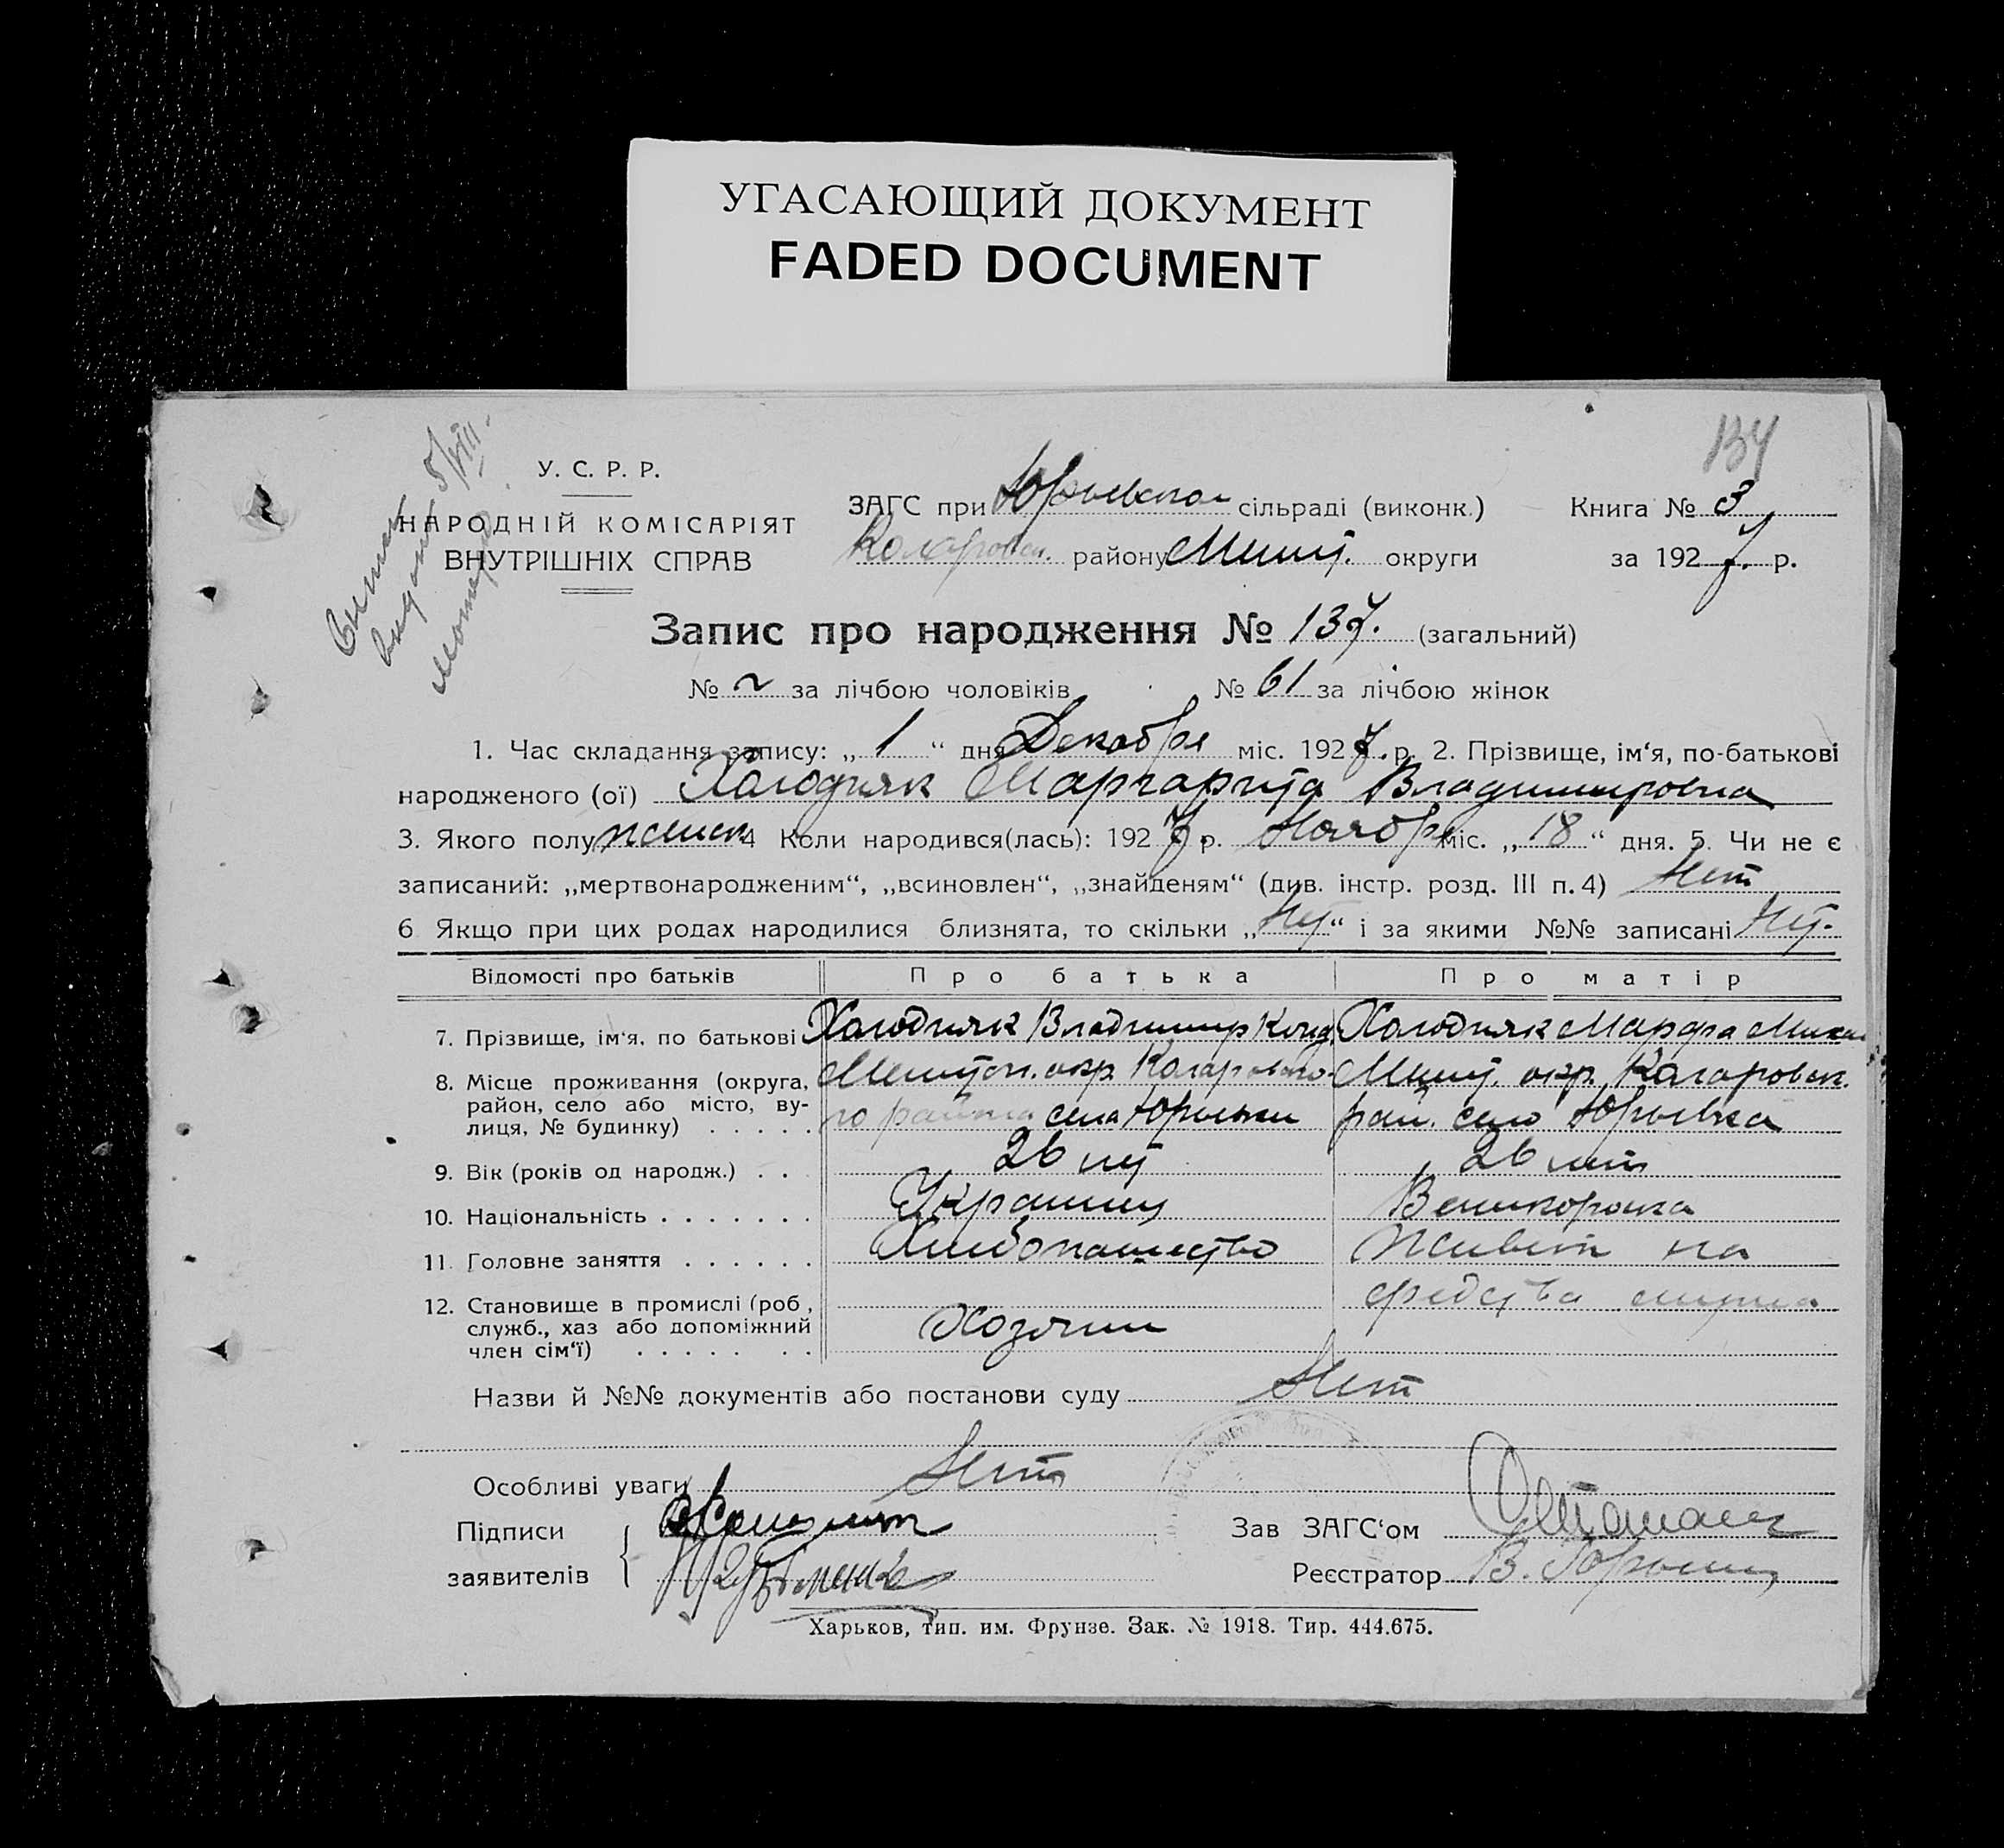 УГАСАЮЩИЙ ДОКУМЕНТ
FADED DOCUMENT
137
5/VIII.
У. С. Р. Р.
НАРОДНІЙ КОМІСАРІЯТ
ВНУТРІШНІХ СПРАВ
ЗАГС при Юрьевском сільраді (виконк.) Книга № 3
Коларовск. району Мелит. округи за 1927. р.
Запис про народження № 137. (загальний)
№ ~ за лічбою чоловіків № 61 за лічбою жінок
1. Час складання запису: „ 1 “ дня Декабря міс. 1927. р. 2. Прізвище, ім‘я, по-батькові
народженого (ої) Холодняк Маргарита Владимировна
3. Якого полу женск 4 Коли народився(лась): 1927 р. Ноября міс. „ 18 “ дня. 5. Чи не є
записаний: „мертвонародженим“, „всиновлен“, „знайденям“ (див. інстр. розд. III п. 4) Нет
6. Якщо при цих родах народилися близнята, то скільки „Нет“ і за якими №№ записані Нет.
Відомості про батьків Про батька Про матір
7. Прізвище, ім‘я, по батькові Холодняк Владимир Конд Холодняк Марфа Михай
8. Місце проживання (округа, район, село або місто, вулиця, № будинку) . . . . .
окр. Коларовско-го района села Юрьевки
окр. Коларовск. рай. село Юрьевка
9. Вік (років од народж.) . . 26 лет 26 лет
10. Національність . . . . . . . Украинец Великороска
11. Головне заняття . . . . . . Хлебопашество Живет на
средства мужа
12. Становище в промислі (роб., служб., хаз або допоміжний член сім‘ї) . . . . . . . Хозяин
Назви й №№ документів або постанови суду Нет
Особливі уваги Нет
Підписи
заявителів
Зав ЗАГС‘ом
Реєстратор В.
Харьков, тип. им. Фрунзе. Зак. № 1918. Тир. 444.675.